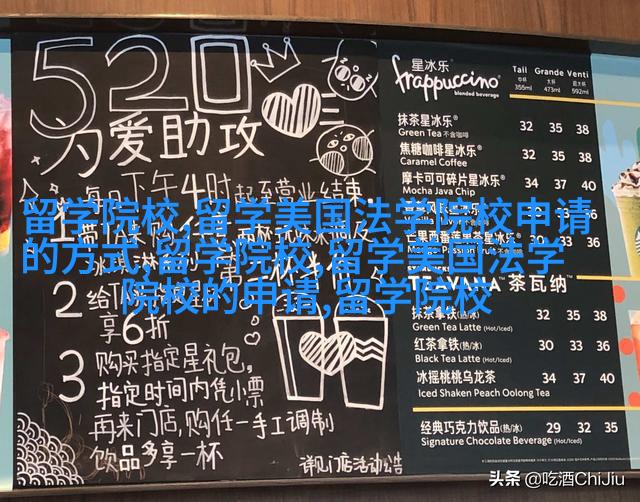 520
为爱助攻
每日下午4时起至营业结束,
1
2
享6折
3 购买指定星礼包,
指定时间内凭小票
再来门店,购任一手工调制
饮品多享一杯
详见门店活动公告
星冰乐®
frappuccino®
blended beverage
Tall Grande Venti
中杯 大杯 超大杯
355ml 473ml 592ml
抹茶星冰乐® 32 35 38
Green Tea 不含咖啡
焦糖咖啡星冰乐® 32 35 38
Caramel Coffee
摩卡可可碎片星冰乐® 34 37 40
Mocha Java Chip
33 36
茶瓦纳™
抹茶拿铁(热/冰) 32 35 38
Green Tea Latte (Hot/Iced)
红茶拿铁(热/冰) 30 33 36
Black Tea Latte (Hot/Iced)
冰摇桃桃乌龙茶 34 37 40
Iced Shaken Peach Oolong Tea
经典巧克力饮品(热/冰) 29 32 35
Signature Chocolate Beverage (Hot/Iced)
留学院校,留学美国法学院校申请
的方式,留学院校,留学美国法学
院校的申请,留学院校
头条 @吃酒ChiJiu